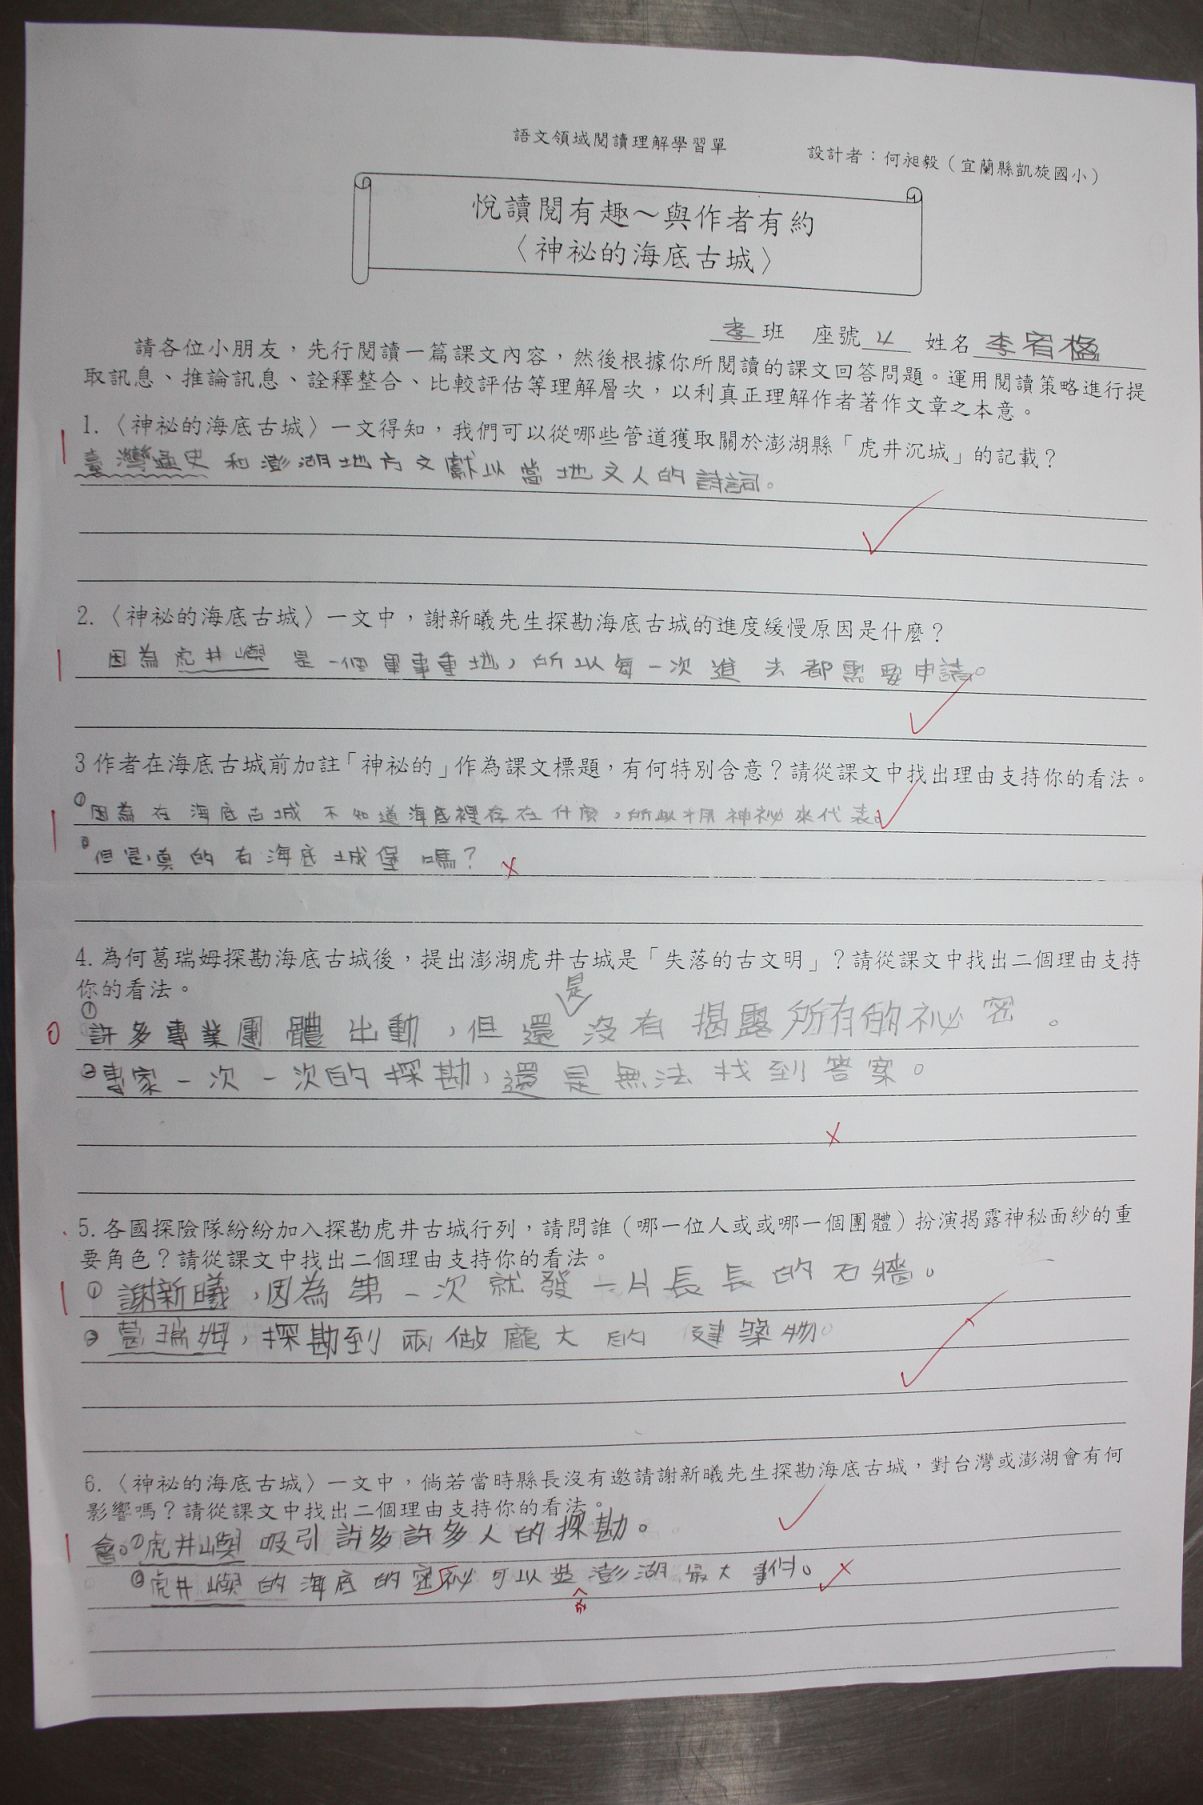 語文領域閱讀理解學習單
設計者：何昶毅（宜蘭縣凱旋國小）
悅讀閱有趣～與作者有約
〈神祕的海底古城〉
孝班 座號 4 姓名 李宥
請各位小朋友，先行閱讀一篇課文內容，然後根據你所閱讀的課文回答問題。運用閱讀策略進行提
取訊息、推論訊息、詮釋整合、比較評估等理解層次，以利真正理解作者著作文章之本意。
1.〈神祕的海底古城〉一文得知，我們可以從哪些管道獲取關於澎湖縣「虎井沉城」的記載？
1 臺灣通史和澎湖地方文獻以當地文人的詩詞。
2.〈神祕的海底古城〉一文中，謝新曦先生探勘海底古城的進度緩慢原因是什麼？
1 因為虎井嶼是一個軍事重地，所以每一次進去都需要申請。
3 作者在海底古城前加註「神祕的」作為課文標題，有何特別含意？請從課文中找出理由支持你的看法。
1 ①因為在海底古城不知道海底裡存在什麼，所以用神祕來代表。
②但是真的有海底城堡嗎？
4.為何葛瑞姆探勘海底古城後，提出澎湖虎井古城是「失落的古文明」？請從課文中找出二個理由支持
你的看法。
是
0 ①許多專業團體出動，但還沒有揭露所有的祕密。
②專家一次一次的探勘，還是無法找到答案。
5.各國探險隊紛紛加入探勘虎井古城行列，請問誰（哪一位人或或哪一個團體）扮演揭露神秘面紗的重
要角色？請從課文中找出二個理由支持你的看法。
1 ①謝新曦，因為第一次就發一片長長的石牆。
②葛瑞姆，探勘到兩做龐大的建築物。
6.〈神祕的海底古城〉一文中，倘若當時縣長沒有邀請謝新曦先生探勘海底古城，對台灣或澎湖會有何
影響嗎？請從課文中找出二個理由支持你的看法。
1 會。①虎井嶼吸引許多許多人的探勘。
②虎井嶼的海底的密祕可以並澎湖最大事件。